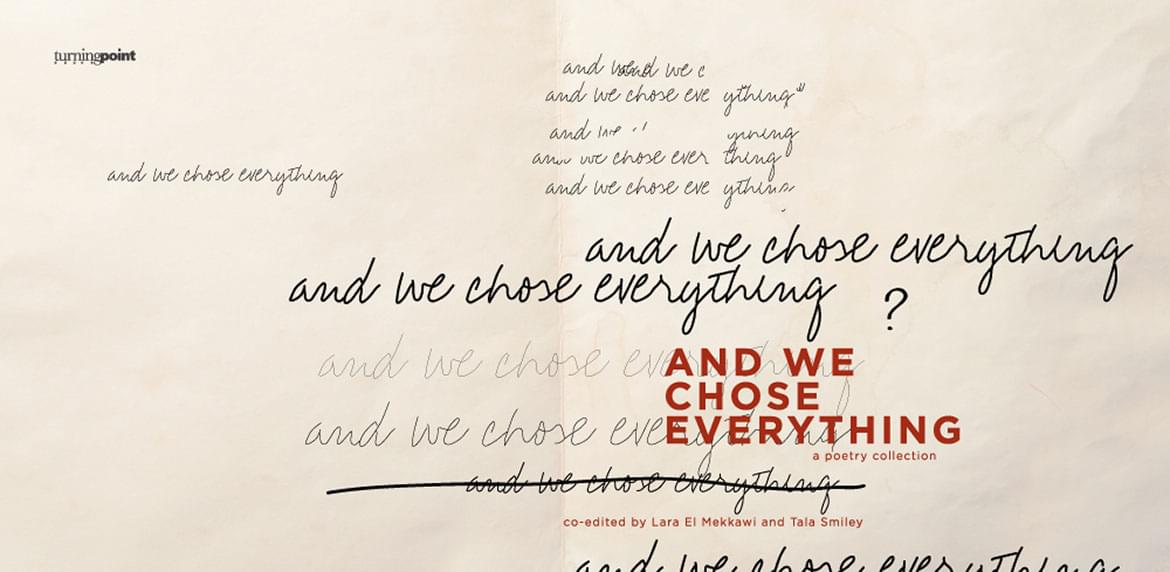 turningpoint
and we and we c
and we chose eve ything"
and we
and we chose everything
we chose ever thing
and we chose eve ythin
and we chose everything
and we chose everything
?
and we chose everything
AND WE
CHOSE
and we chose everything
EVERYTHING
a poetry collection
and we chose everything
co-edited by Lara El Mekkawi and Tala Smiley
and we chose everything